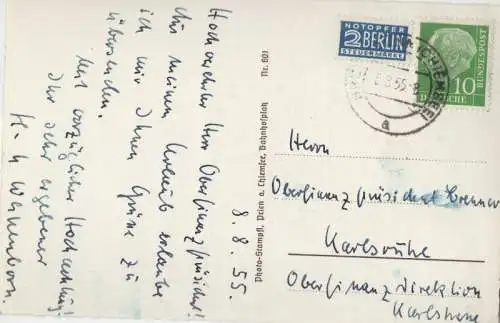 8. 8. 55.
Hochverehrter Herr Oberfinanzpräsident!
Aus meinem Urlaub erlaube
ich mir Ihnen Grüsse zu
übersenden.
Mit vorzüglicher Hochachtung!
Ihr sehr ergebener
Photo-Stampfl, Prien a. Chiemsee, Bahnhofplatz Nr. 601
NOTOPFER
2 BERLIN
STEUERMARKE
8.8.55-8
a
10
DEUTSCHE
BUNDESPOST
Herrn
Oberfinanzpräsident
Karlsruhe
Oberfinanz direktion
Karlstrasse